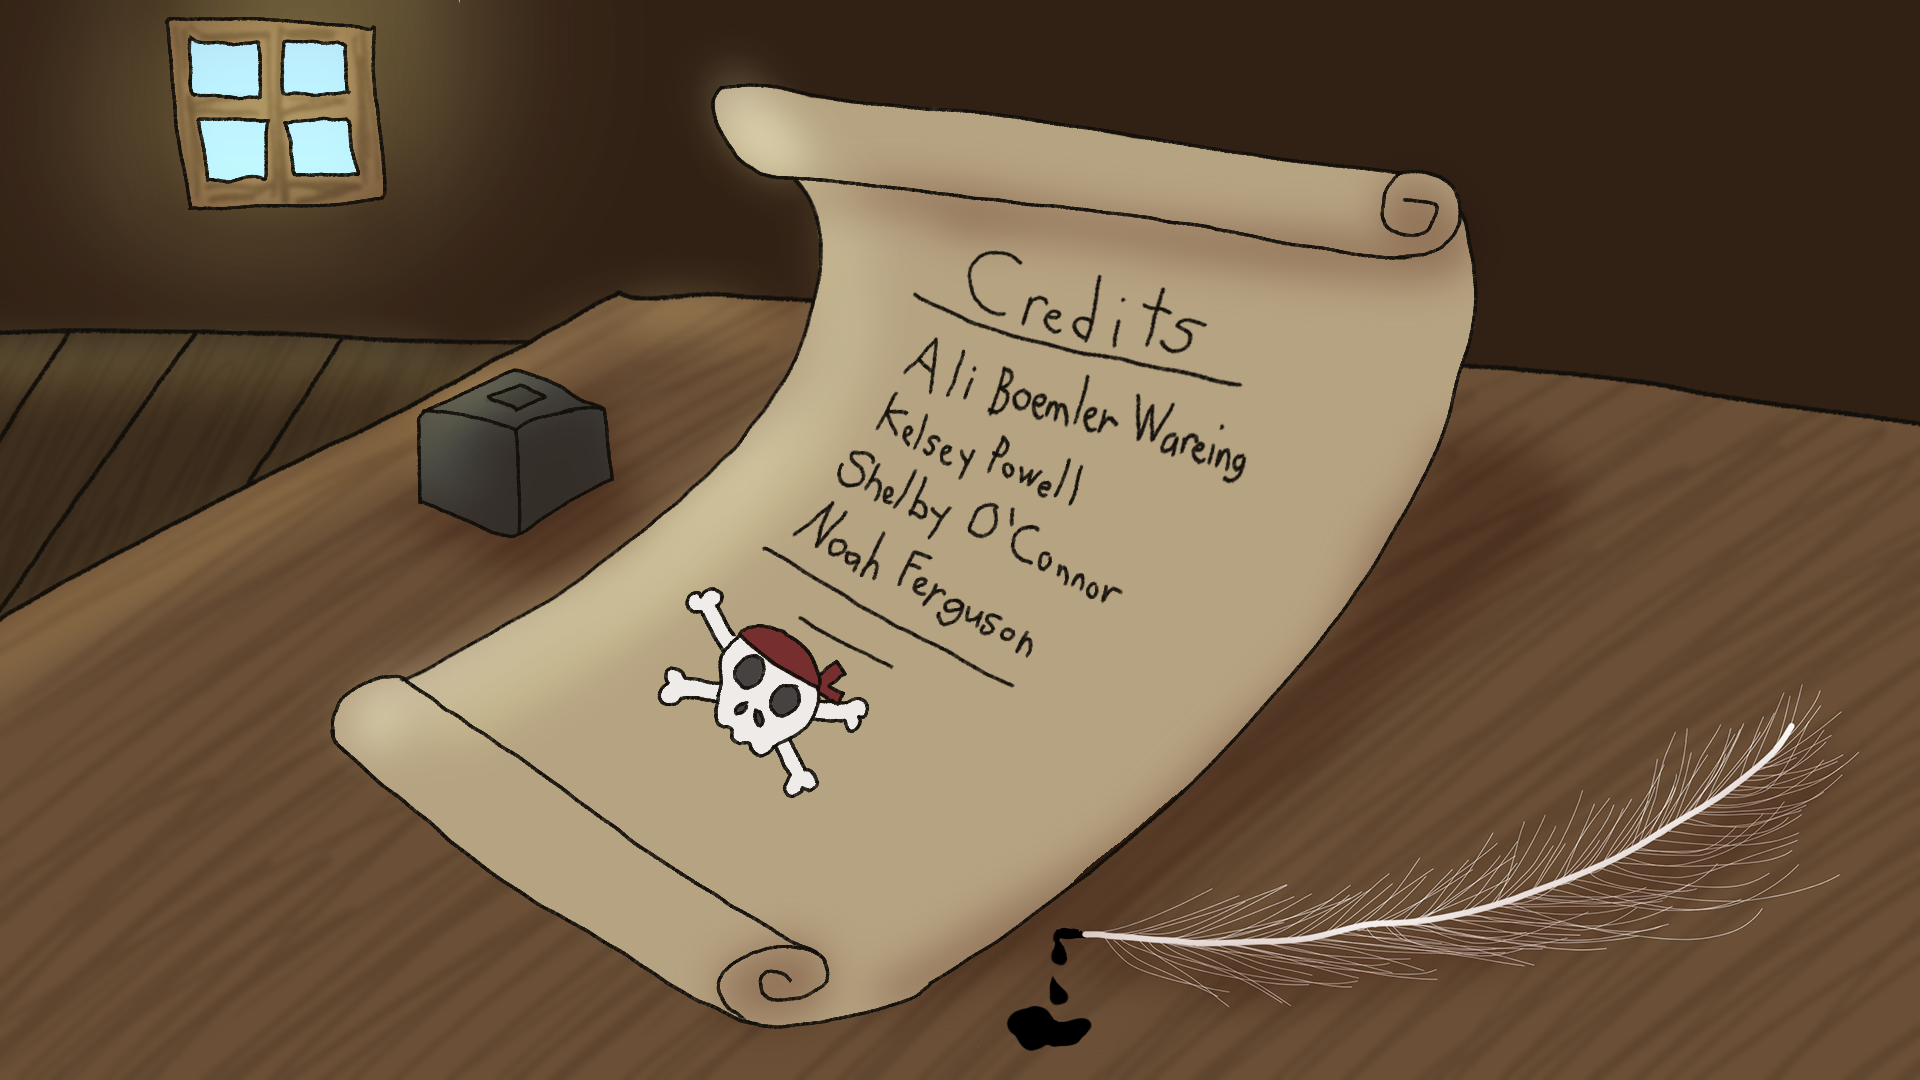 Credits
Ali Boemler Wareing
Kelsey Powell
Shelby O'Connor
Noah Ferguson